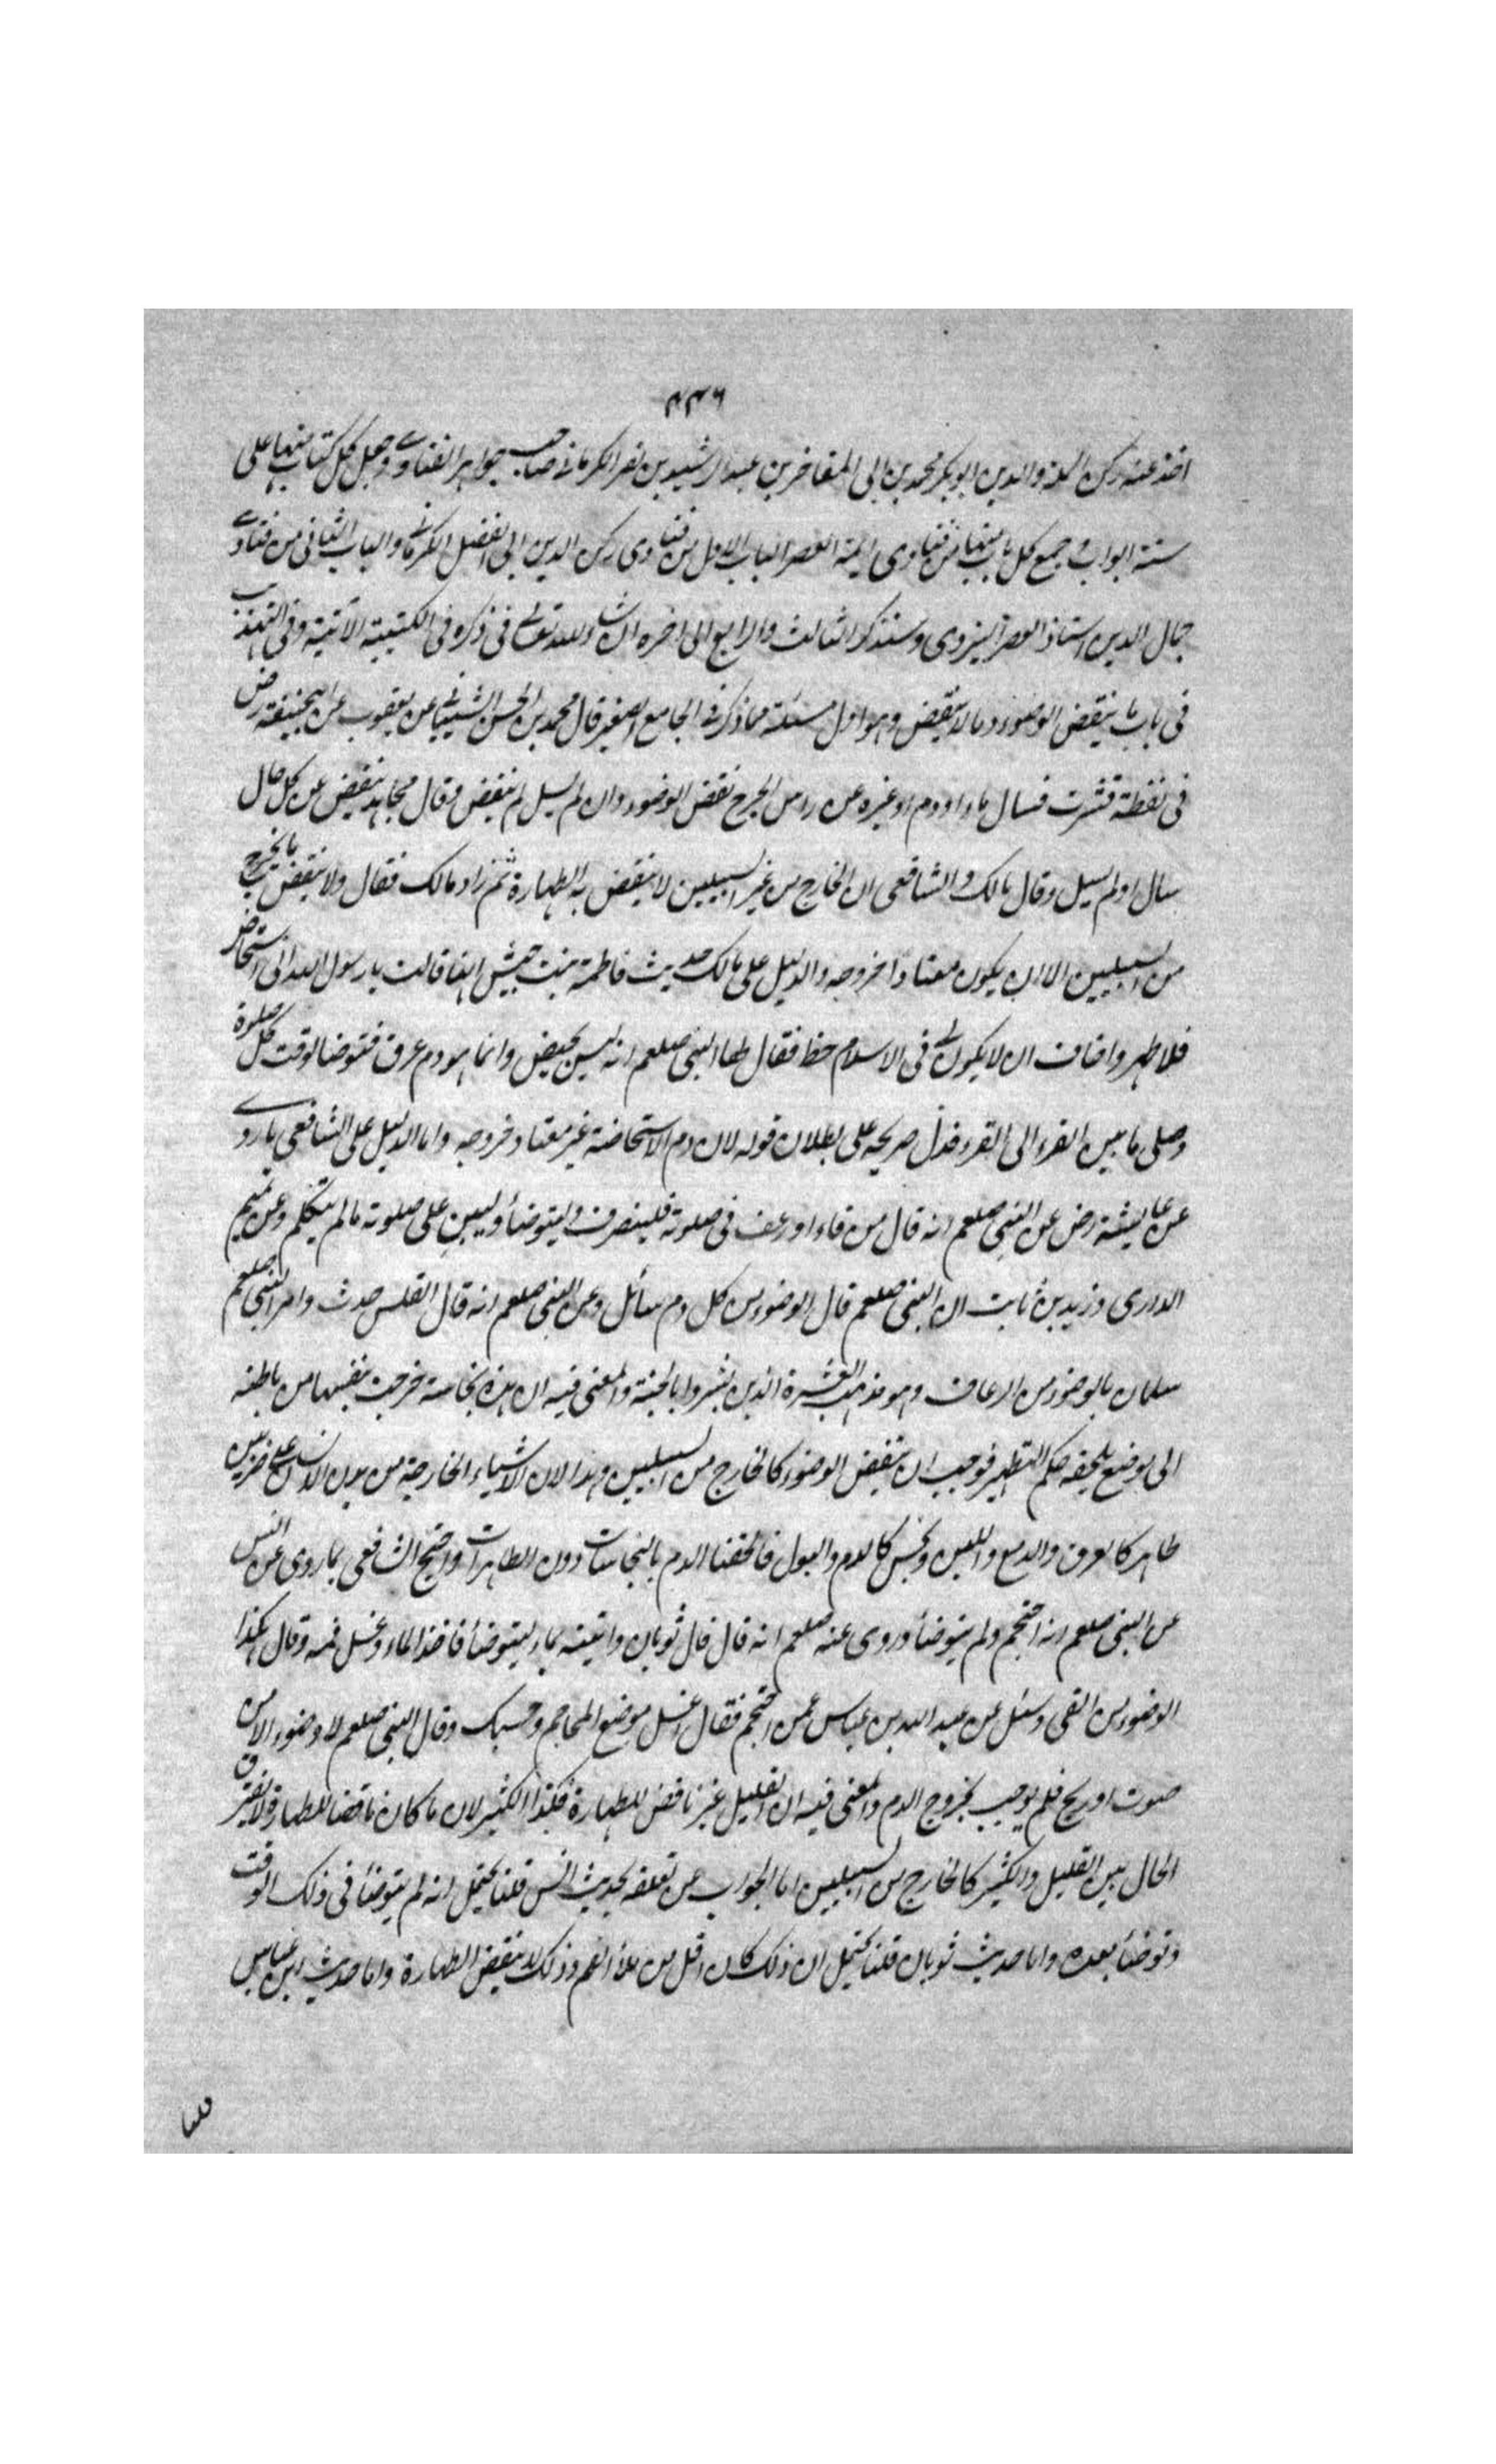 ٤٣٦
اخذ عنه ركن الملة والدين ابو بكر محمد بن ابى المفاخر بن عبد الرشيد بن نصر الكرمانى صاحب جواهر الفتاوى وجعل كل كتاب منها على
ستة ابواب وجمع كل باب منها من فتاوى ائمة العصر الباب الاول من فتاوى ركن الدين ابى الفضل الكرمانى والباب الثانى من فتاوى
جمال الدين استاذ العصر البزدوى وسنذكر الثالث والرابع الى اخره ان شاء الله تعالى فى ذكره فى الكتيبة الآتية وفى التهذيب
فى باب ما ينقض الوضوء وما لا ينقض وهو اول مسئلة مما ذكر فى الجامع الصغير قال محمد بن الحسن الشيبانى عن يعقوب عن ابيحنيفة رض
فى نفطة قشرت فسال ماء او دم او غيره عن راس الجرح نقض الوضوء وان لم يسل لم ينقض وقال مجاهد ينقض عن كل حال
سال او لم يسل وقال مالك والشافعى ان الخارج من غير السبيلين لا ينقض به الطهارة ثم زاد مالك فقال ولا ينقض بما يخرج
من السبيلين الا ان يكون معتادا خروجه والدليل على مالك حديث فاطمة بنت حبيش انها قالت يا رسول الله انى استحاض
فلا اطهر واخاف ان لا يكون لى فى الاسلام حظ فقال لها النبى صلعم انه ليس بحيض وانما هو دم عرق فتوضا لوقت كل صلوة
وصلى ما بين القرء الى القرء فدل صريحه على بطلان قوله لان دم الاستحاضة غير معتاد خروجه واما الدليل على الشافعى ما روى
عن عايشة رض عن النبى صلعم انه قال من قاء او رعف فى صلوته فلينصرف وليتوضأ وليبن على صلوته ما لم يتكلم وعن تميم
الدارى وزيد بن ثابت ان النبى صلعم قال الوضوء من كل دم سائل وعن النبى صلعم انه قال القلس حدث وامر النبى صلعم
سلمان بالوضوء من الرعاف وهو مذهب العشرة الذين بشروا بالجنة والمعنى فيه ان هذه نجاسة خرجت بنفسها من باطنه
الى موضع يلحقه حكم التطهير فوجب ان ينقض الوضوء كالخارج من السبيلين وهذا لان الاشياء الخارجة من بدن الانسان على ضربين
طاهر كالعرق والدمع واللبن ونجس كالدم والبول فالحقنا الدم بالنجاسات دون الطاهرات واحتج الشافعى بما روى عن انس
عن النبى صلعم انه احتجم ولم يتوضأ وروى عنه صلعم انه قال قال ثوبان واتيته بماء ليتوضأ فاخذ الماء وغسل فمه وقال هكذا
الوضوء من القى وسئل عن عبد الله بن عباس عمن احتجم فقال اغسل موضع المحاجم وحسبك وقال النبى صلعم لا وضوء الا من
صوت او ريح فلم يوجب بخروج الدم والمعنى فيه ان القليل غير ناقض للطهارة فكذا الكثير لان ما كان ناقضا للطهارة لا يفترق
الحال بين القليل والكثير كالخارج من السبيلين اما الجواب عن تعلقه بحديث انس قلنا يحتمل انه لم يتوضأ فى ذلك الوقت
وتوضأ بعده واما حديث ثوبان قلنا يحتمل ان ذلك كان اقل من ملأ الفم وذلك لا ينقض الطهارة واما حديث ابن عباس
قلنا